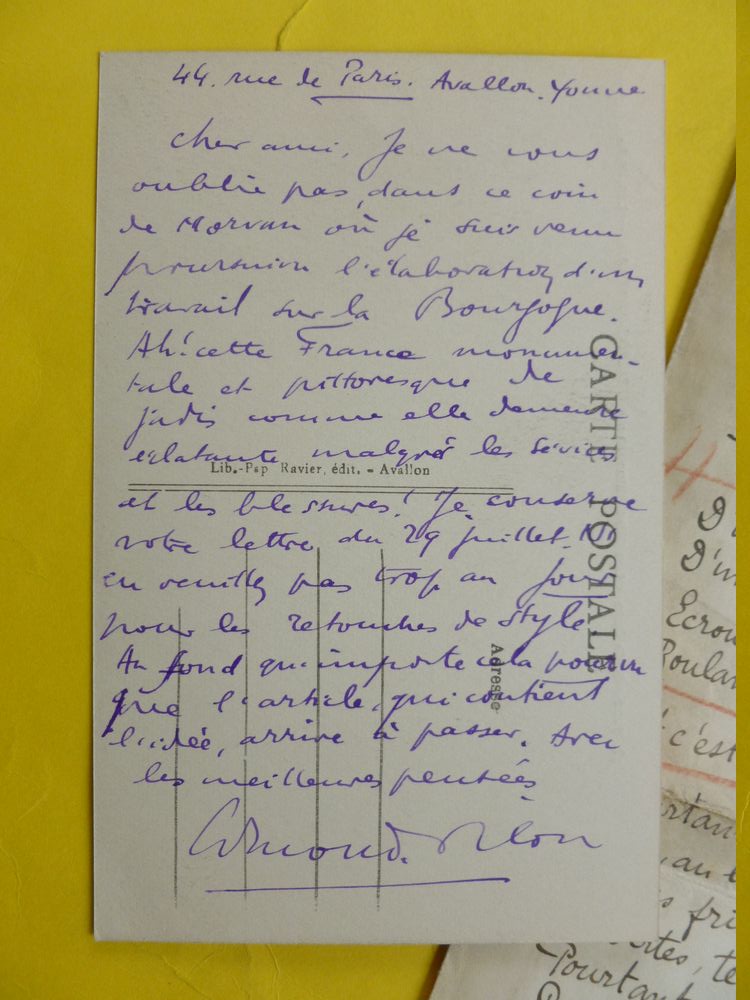 44. rue de Paris. Avallon. Yonne
cher ami, Je ne vous
oublie pas, dans ce coin
de Morvan où je suis venu
poursuivre l'élaboration d'un
travail sur la Bourgogne.
Ah! cette France monumen-
tale et pittoresque de
jadis comme elle demeure
éclatante malgré les sévices
Lib.-Pap Ravier, édit. - Avallon
et les blessures! Je conserve
votre lettre du 29 juillet. N'
en veuillez pas trop au
pour les retouches de style
Au fond qu'importe cela pourvu
que l'article, qui contient
l'idée, arrive à passer. Avec
les meilleures pensées
Edmond Pilon
CARTE POSTALE
Adresse
D'un
Ecrou
Roulan
c'est
rtan
au
fri
tes, te
Pourtant